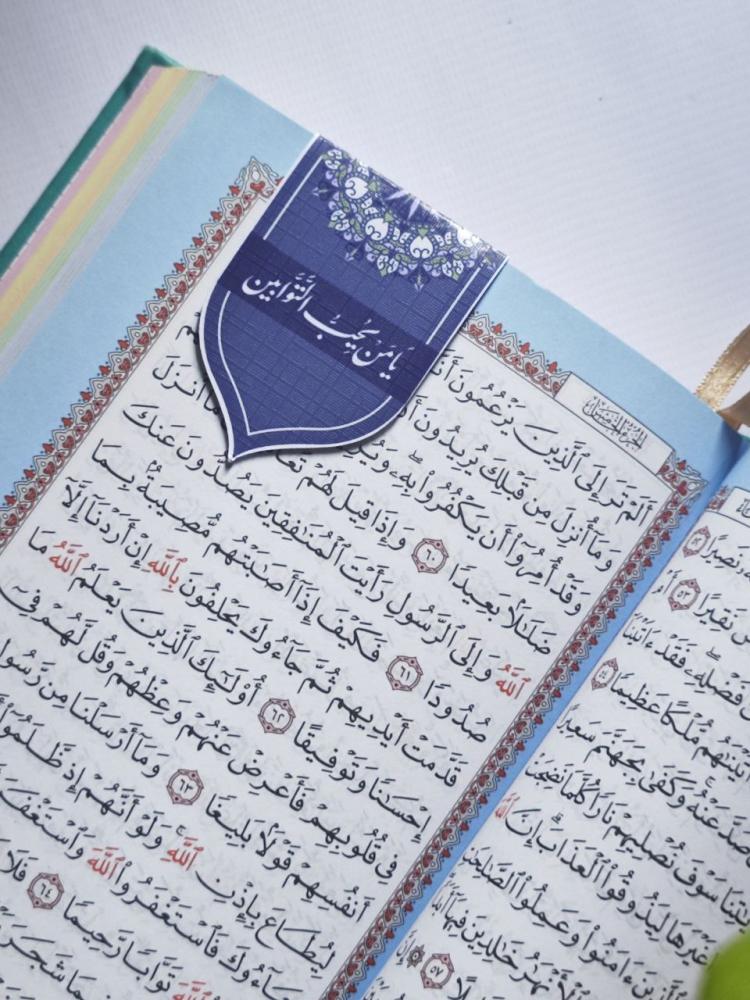 يَا مَنْ يُحِبُّ التَّوَّابِين
الجزء الخامس
أَلَمْ تَرَ إِلَى ٱلَّذِينَ يَزْعُمُونَ
وَمَآ أُنزِلَ مِن قَبْلِكَ يُرِيدُونَ
وَقَدْ أُمِرُوٓا۟ أَن يَكْفُرُوا۟ بِهِۦ
ضَلَـٰلًۢا بَعِيدًا ٦٠ وَإِذَا قِيلَ لَهُمْ أَنزَلَ
ٱللَّهُ وَإِلَى ٱلرَّسُولِ رَأَيْتَ ٱلْمُنَـٰفِقِينَ يَصُدُّونَ عَنكَ
صُدُودًا ٦١ فَكَيْفَ إِذَآ أَصَـٰبَتْهُم مُّصِيبَةٌۢ بِمَا
قَدَّمَتْ أَيْدِيهِمْ ثُمَّ جَآءُوكَ يَحْلِفُونَ بِٱللَّهِ إِنْ أَرَدْنَآ إِلَّآ
إِحْسَـٰنًا وَتَوْفِيقًا ٦٢ أُو۟لَـٰٓئِكَ ٱلَّذِينَ يَعْلَمُ ٱللَّهُ مَا
فِى قُلُوبِهِمْ فَأَعْرِضْ عَنْهُمْ وَعِظْهُمْ وَقُل لَّهُمْ فِىٓ
أَنفُسِهِمْ قَوْلًۢا بَلِيغًا ٦٣ وَمَآ أَرْسَلْنَا مِن رَّسُولٍ
لِيُطَاعَ بِإِذْنِ ٱللَّهِ وَلَوْ أَنَّهُمْ إِذ ظَّلَمُوٓا۟
فَٱسْتَغْفَرُوا۟ ٱللَّهَ
تَوَّابًا رَّحِيمًا ٦٤ فَلَا
شَجَرَ
نَصِيرًا ٥٢
نَقِيرًا ٥٣ أَمْ
فَضْلِهِۦ فَقَدْ ءَاتَيْنَآ
مُّلْكًا عَظِيمًا ٥٤
صَدَّ عَنْهُ وَكَفَىٰ بِجَهَنَّمَ سَعِيرًا
سَوْفَ نُصْلِيهِمْ نَارًا كُلَّمَا نَضِجَتْ
غَيْرَهَا لِيَذُوقُوا۟ ٱلْعَذَابَ إِنَّ ٱللَّهَ
ءَامَنُوا۟ وَعَمِلُوا۟ ٱلصَّـٰلِحَـٰتِ
خَـٰلِدِينَ فِيهَآ
٥٧